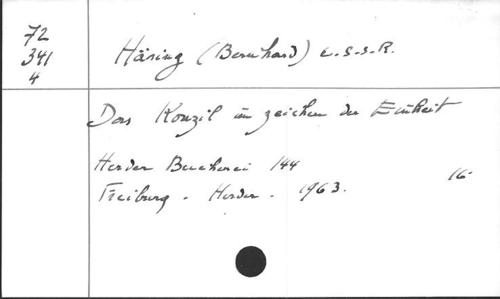 72
341
4
Häring (Bernhard) c.s.s.R.
Das Konzil im zeichen der Einheit
Herder Bucherei 144
Freiburg - Herder - 1963. 16-